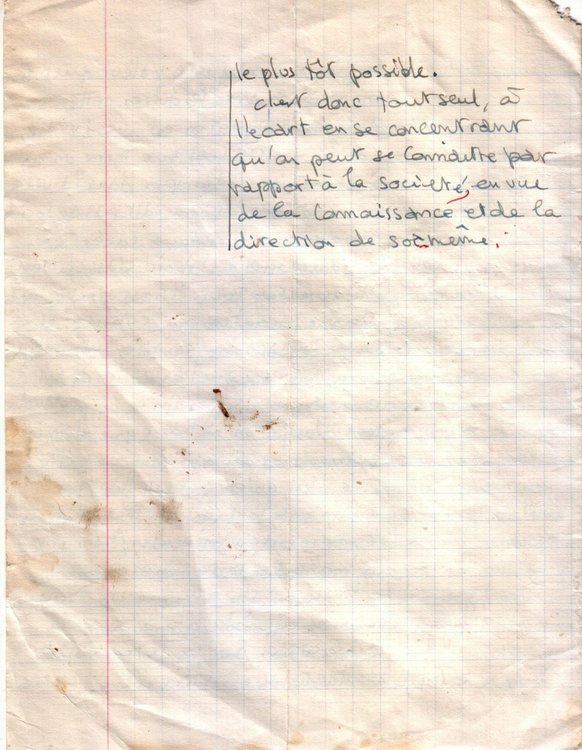 le plus tôt possible.
c'est donc tout seul, à
l'ecart en se concentrant
qu'on peut se connaitre par
rapport à la societé, en vue
de la connaissance et de la
direction de soi même.